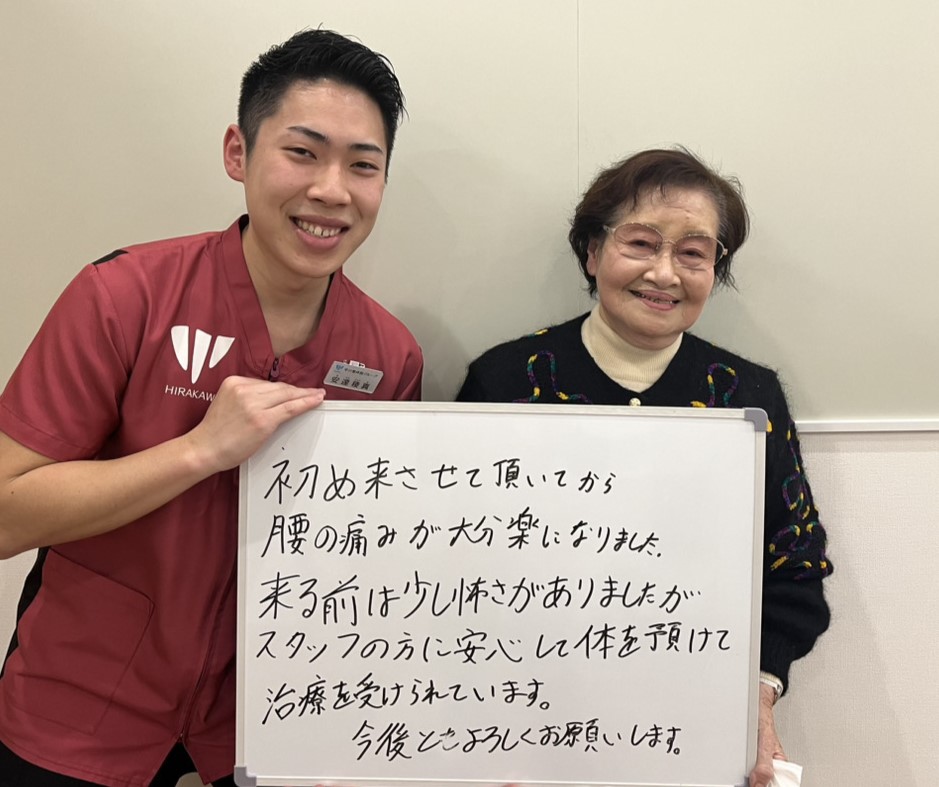 HIRAKAW
初め来させて頂いてから
腰の痛みが大分楽になりました。
来る前は少し怖さがありましたが
スタッフの方に安心して体を預けて
治療を受けられています。
今後ともよろしくお願いします。